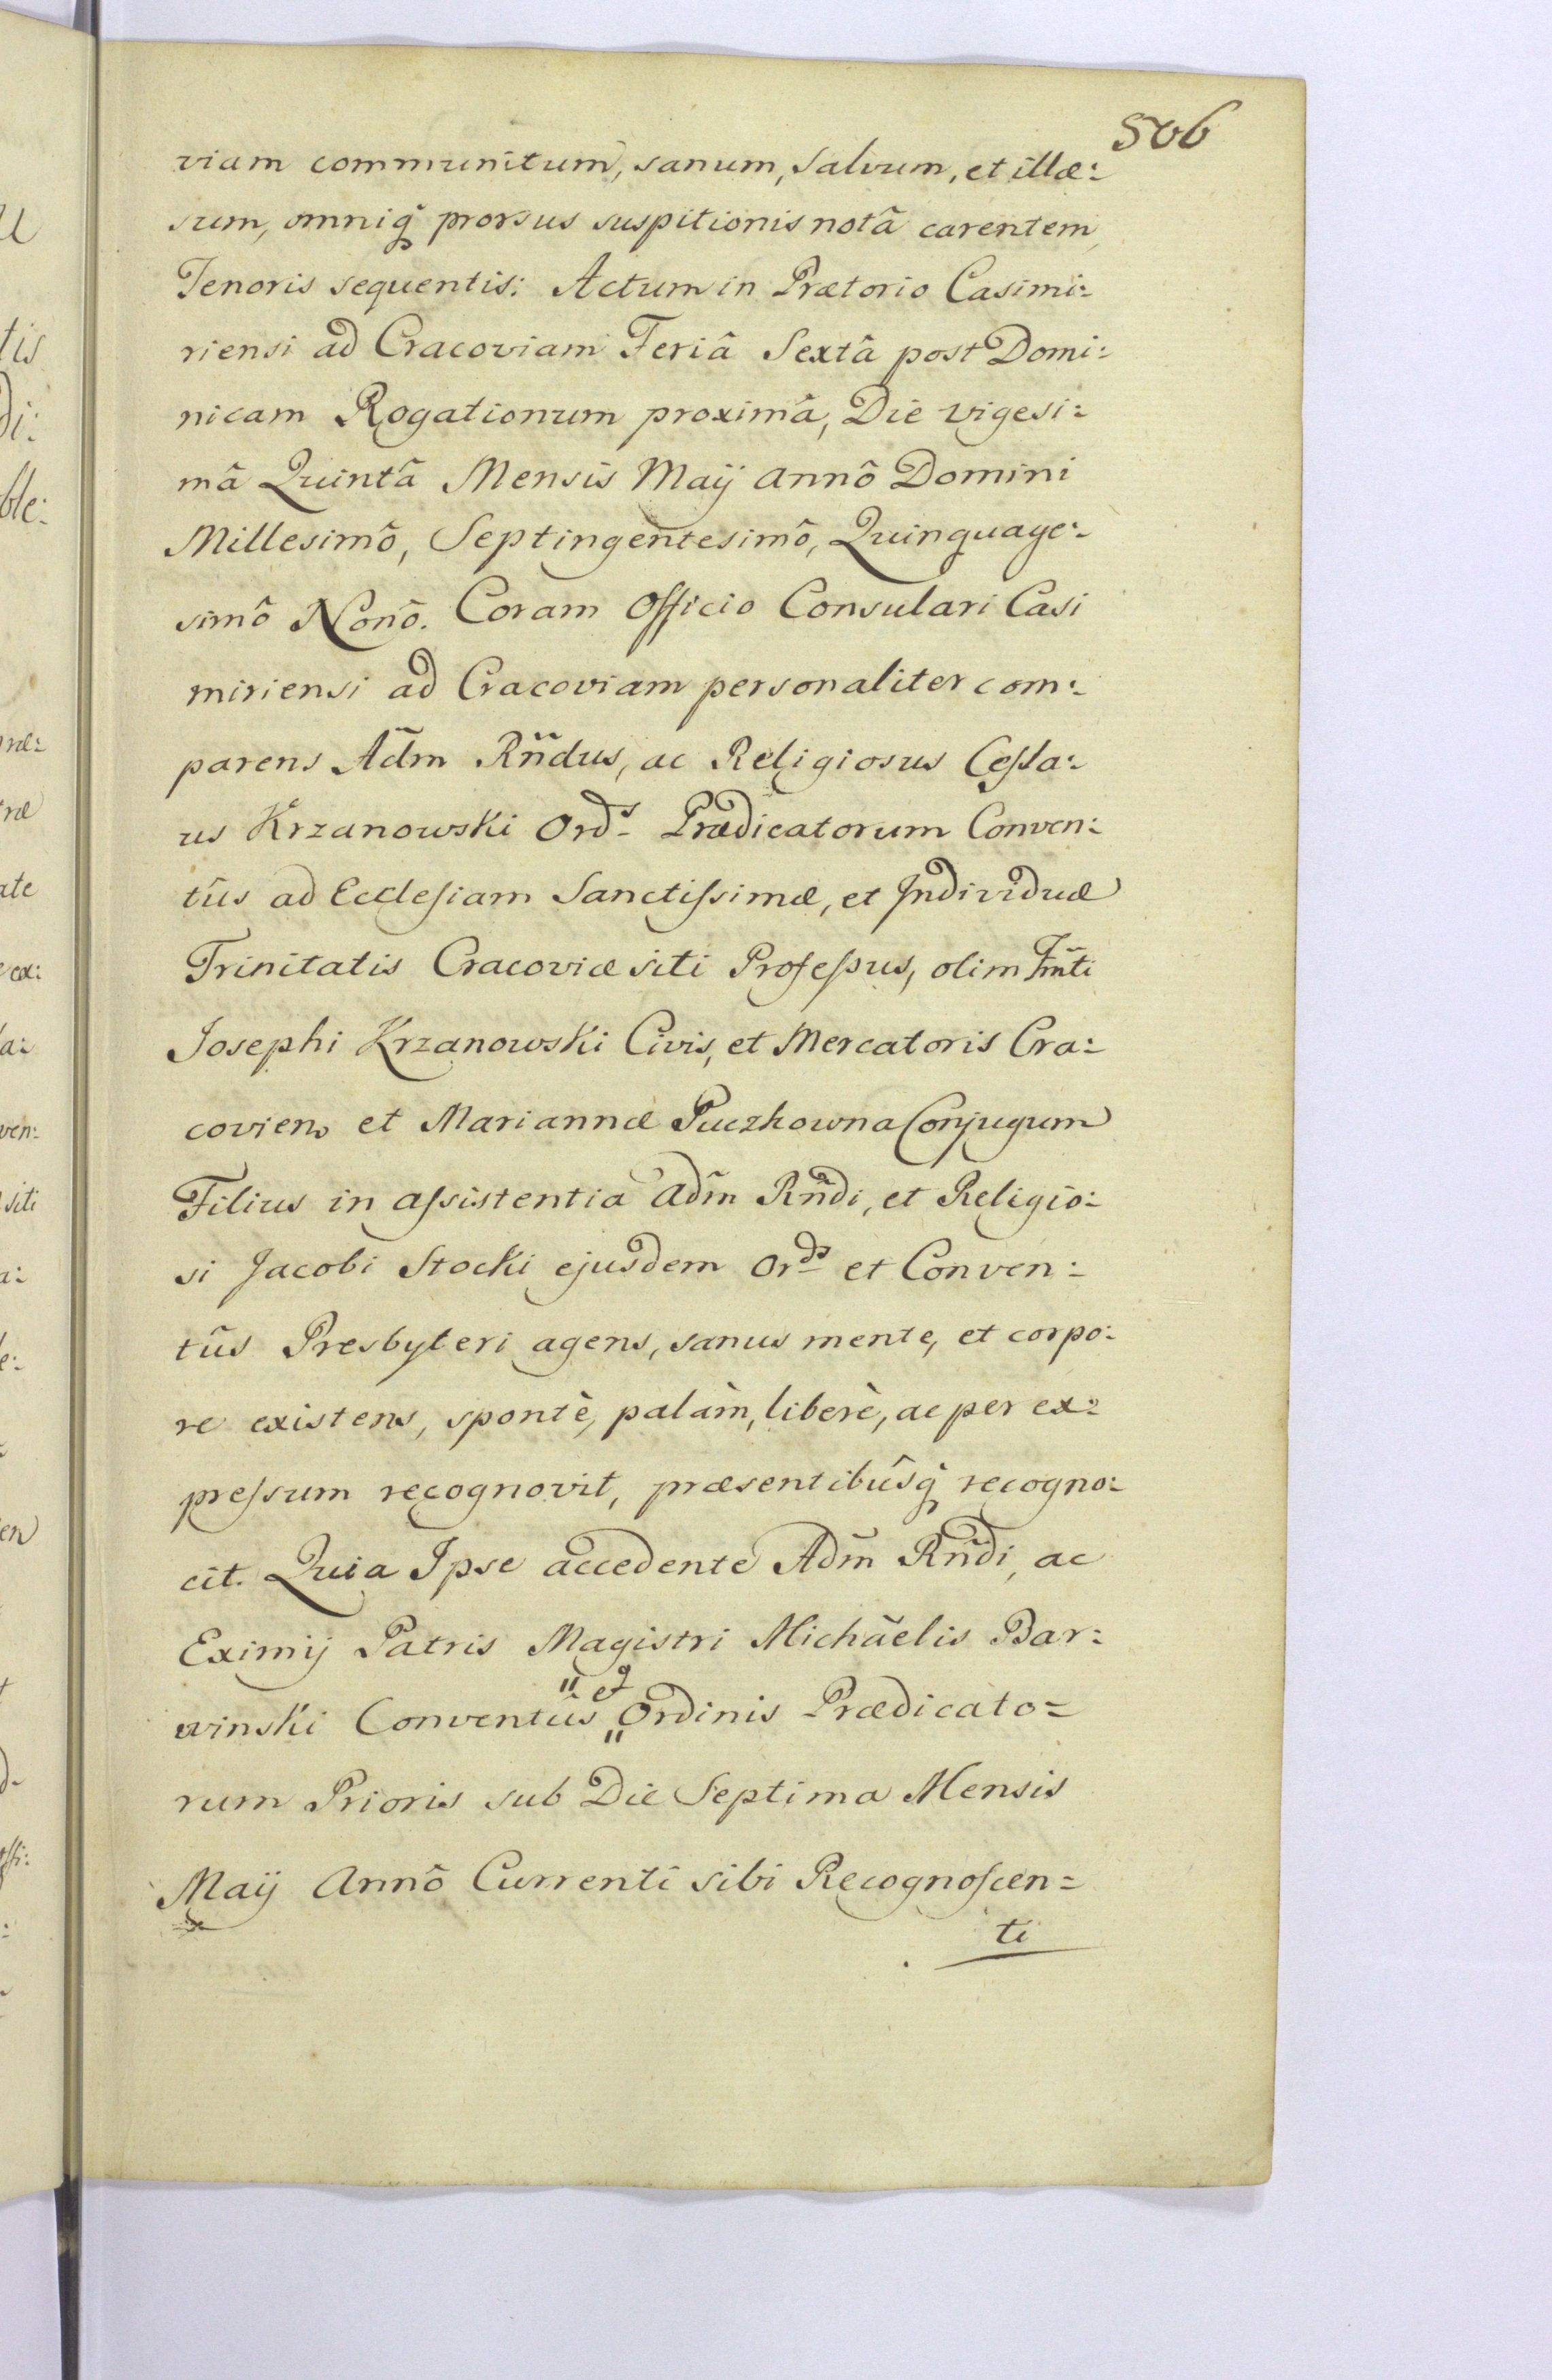 506
viam communitum, sanum, salvum, et illæ:
sum, omniq̃ prorsus suspitionis notâ carentem,
Tenoris sequentis: Actum in Prætorio Casimi:
riensi ad Cracoviam Feriâ Sextâ post Domi:
nicam Rogationum proximâ, Die vigesi:
mâ Quintâ Mensis Maÿ Annô Domini
Millesimô, Septingentesimô, Quinquage:
simô Nonô. Coram Officio Consulari Casi
miriensi ad Cracoviam personaliter com:
parens Adm̃ Rñdus, ac Religiosus Cesla:
us Krzanowski Ord.s Prædicatorum Conven:
tûs ad Ecclesiam Sanctissimæ, et Individuæ
Trinitatis Cracoviæ siti Professus, olim
Josephi Krzanowski Civis, et Mercatoris Cra:
covien. et Mariannæ Puczkowna Conjugum
Filius in assistentia Adm̃ Rñdi, et Religio:
si Jacobi Stocki ejusdem Ord.s et Conven:
tûs Presbyteri agens, sanus mente, et corpo:
re existens, spontè, palàm, liberè, ac per ex:
pressum recognovit, præsentibûsq̃ recogno:
cit. Quia Ipse accedente Adm̃ Rñdi, ac
Eximij Patris Magistri Michaëlis Bar:
winski Conventûs " et " Ordinis Prædicato=
rum Prioris sub Die Septima Mensis
Maÿ Annô Currenti sibi Recognoscen=
ti